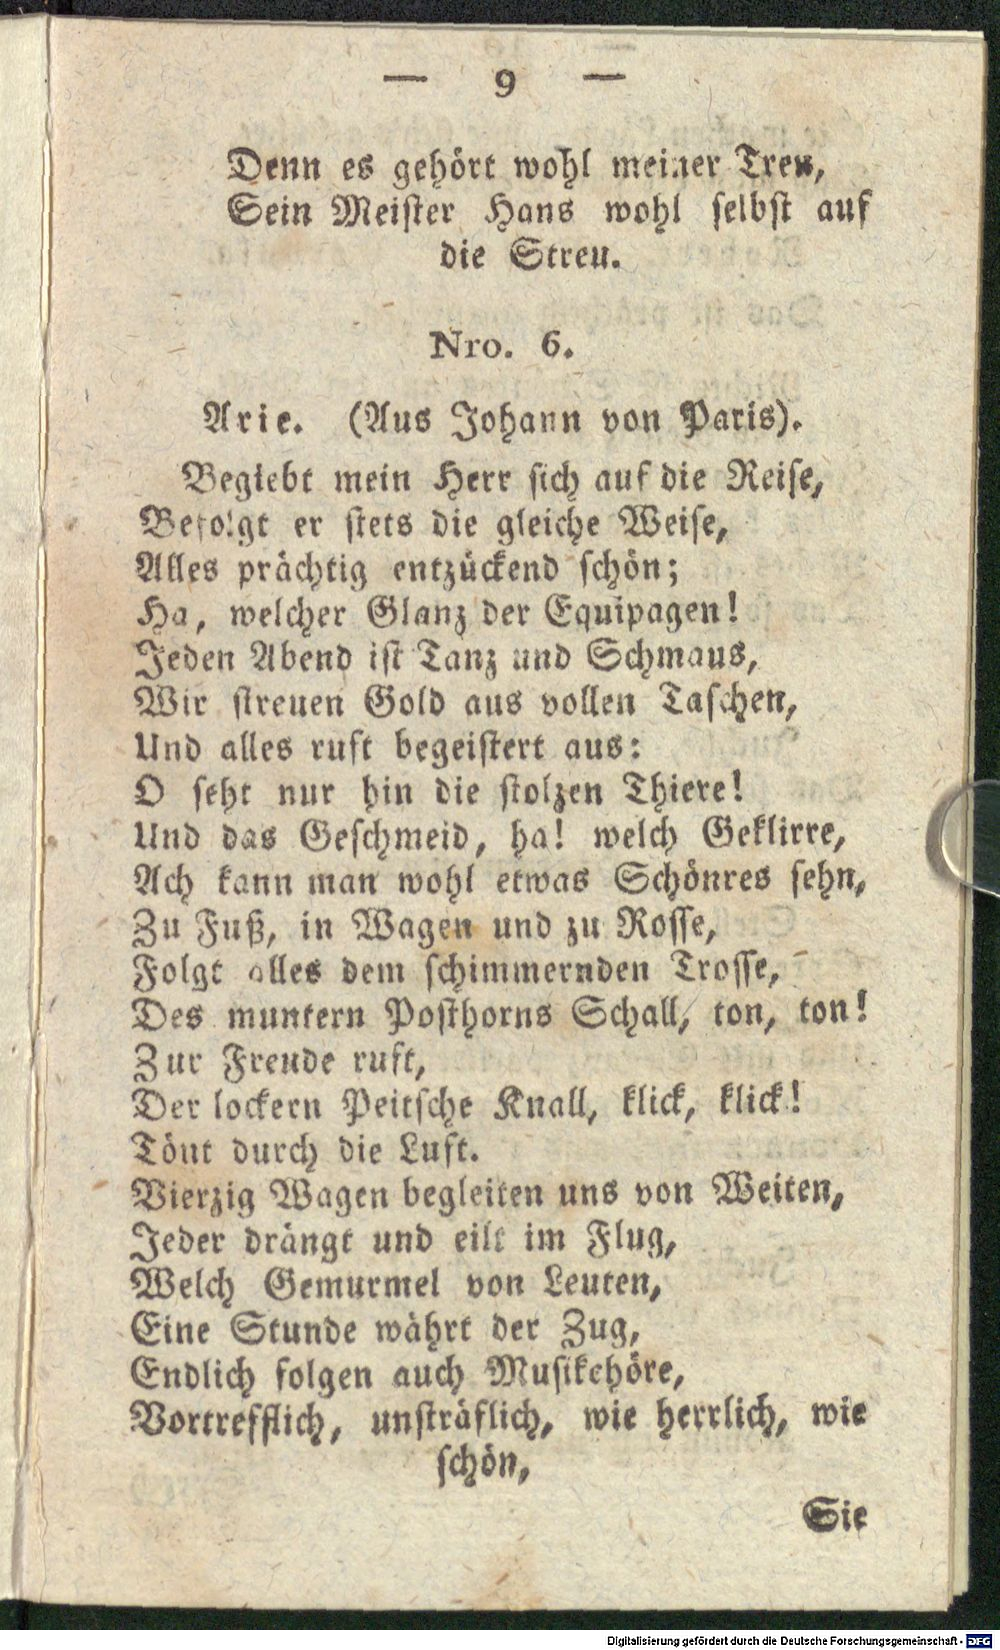 — 9 —
Denn es gehört wohl meiner Treu,
Sein Meister Hans wohl selbst auf
die Streu.
Nro. 6.
Arie. (Aus Johann von Paris).
Begiebt mein Herr sich auf die Reise,
Befolgt er stets die gleiche Weise,
Alles prächtig entzückend schön;
Ha, welcher Glanz der Equipagen!
Jeden Abend ist Tanz und Schmaus,
Wir streuen Gold aus vollen Taschen,
Und alles ruft begeistert aus:
O seht nur hin die stolzen Thiere!
Und das Geschmeid, ha! welch Geklirre,
Ach kann man wohl etwas Schönres sehn,
Zu Fuß, in Wagen und zu Rosse,
Folgt alles dem schimmernden Trosse,
Des muntern Posthorns Schall, ton, ton!
Zur Freude ruft,
Der lockern Peitsche Knall, klick, klick!
Tönt durch die Luft.
Vierzig Wagen begleiten uns von Weiten,
Jeder drängt und eilt im Flug,
Welch Gemurmel von Leuten,
Eine Stunde währt der Zug,
Endlich folgen auch Musikehöre,
Vortrefflich, unsträflich, wie herrlich, wie
schön,
Sie
Digitalisierung gefördert durch die Deutsche Forschungsgemeinschaft - DFG